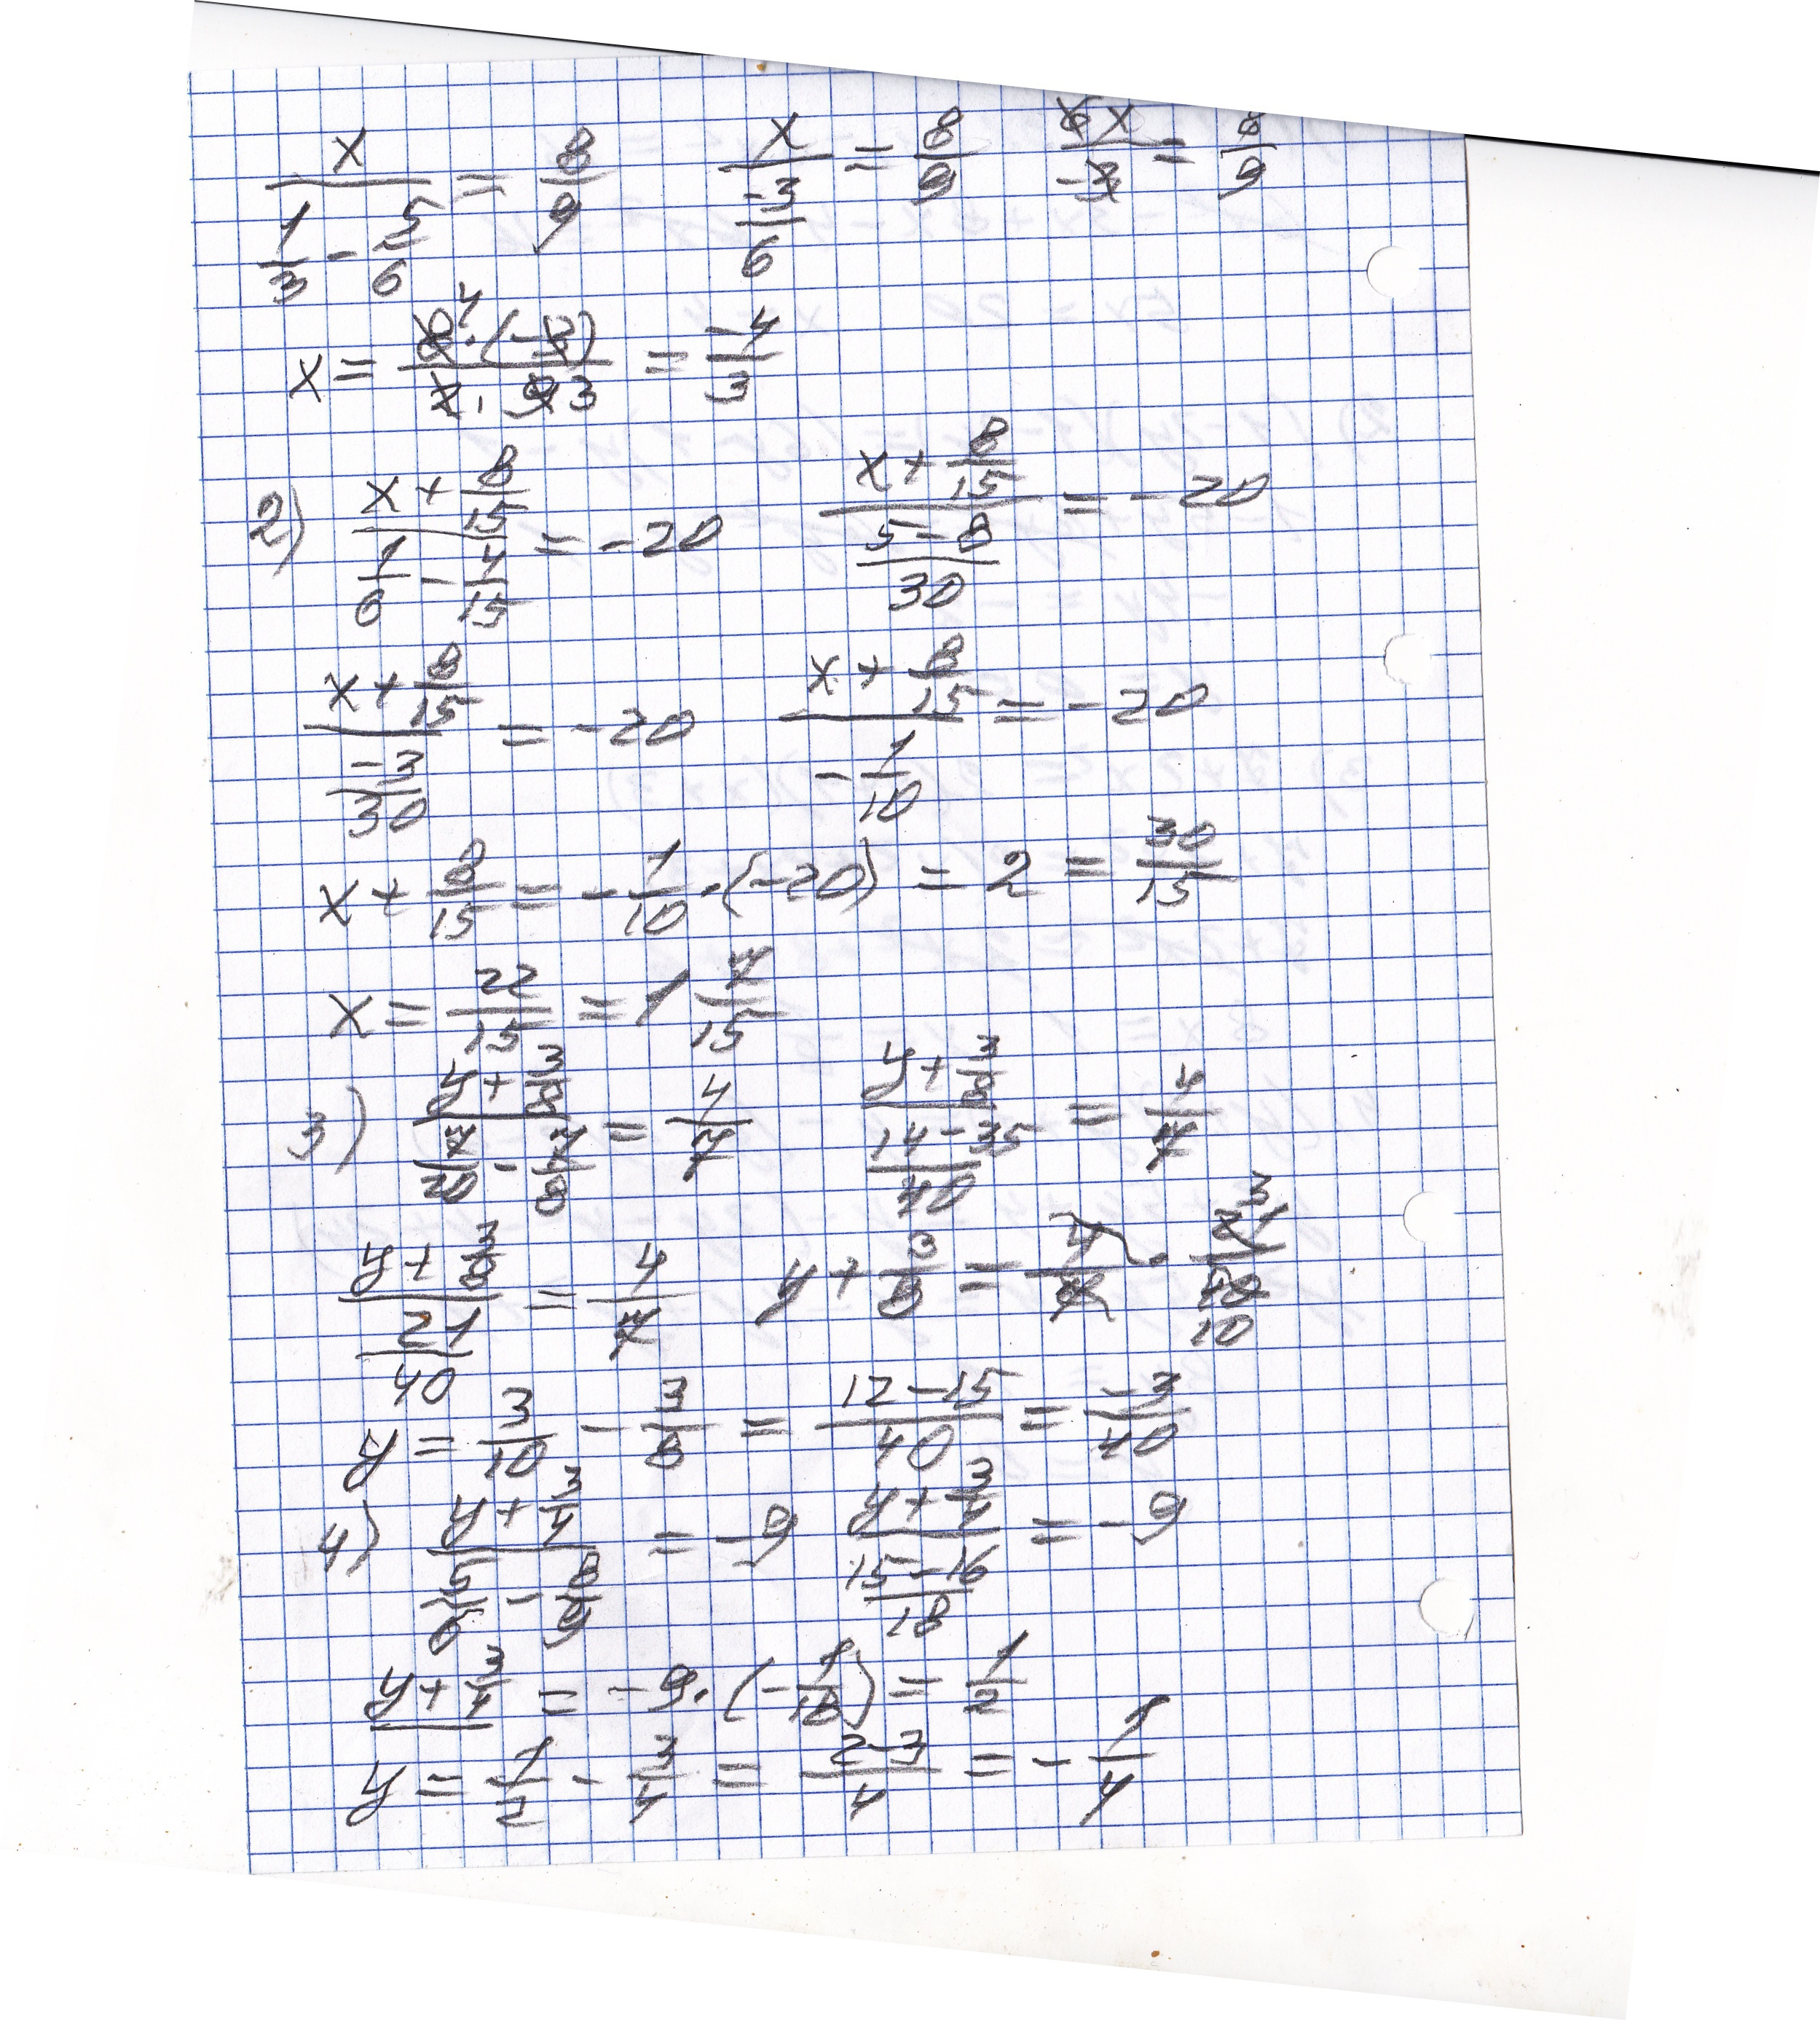 x/(1/3 - 5/6) = 8/9    x/(-3/6) = 8/9    6x/-3 = 8/9
x = 8 4 · (-3)/2 · 9 3 = -4/3
2) (x + 8/15)/(1/6 - 4/15) = -20    (x + 8/15)/((5-8)/30) = -20
(x + 8/15)/(-3/30) = -20    (x + 8/15)/(-1/10) = -20
x + 8/15 = -1/10 · (-20) = 2 = 30/15
x = 22/15 = 1 7/15
3) (y + 3/8)/(7/20 - 7/8) = 4/7    (y + 3/8)/((14-35)/40) = 4/7
(y + 3/8)/(21/40) = 4/7    y + 3/8 = 4/7 · 21 3/40 10
y = 3/10 - 3/8 = (12-15)/40 = -3/40
4) (y + 3/4)/(5/6 - 8/9) = -9    (y + 3/4)/((15-16)/18) = -9
y + 3/4 = -9 · (-1/18) = 1/2
y = 1/2 - 3/4 = (2-3)/4 = -1/4